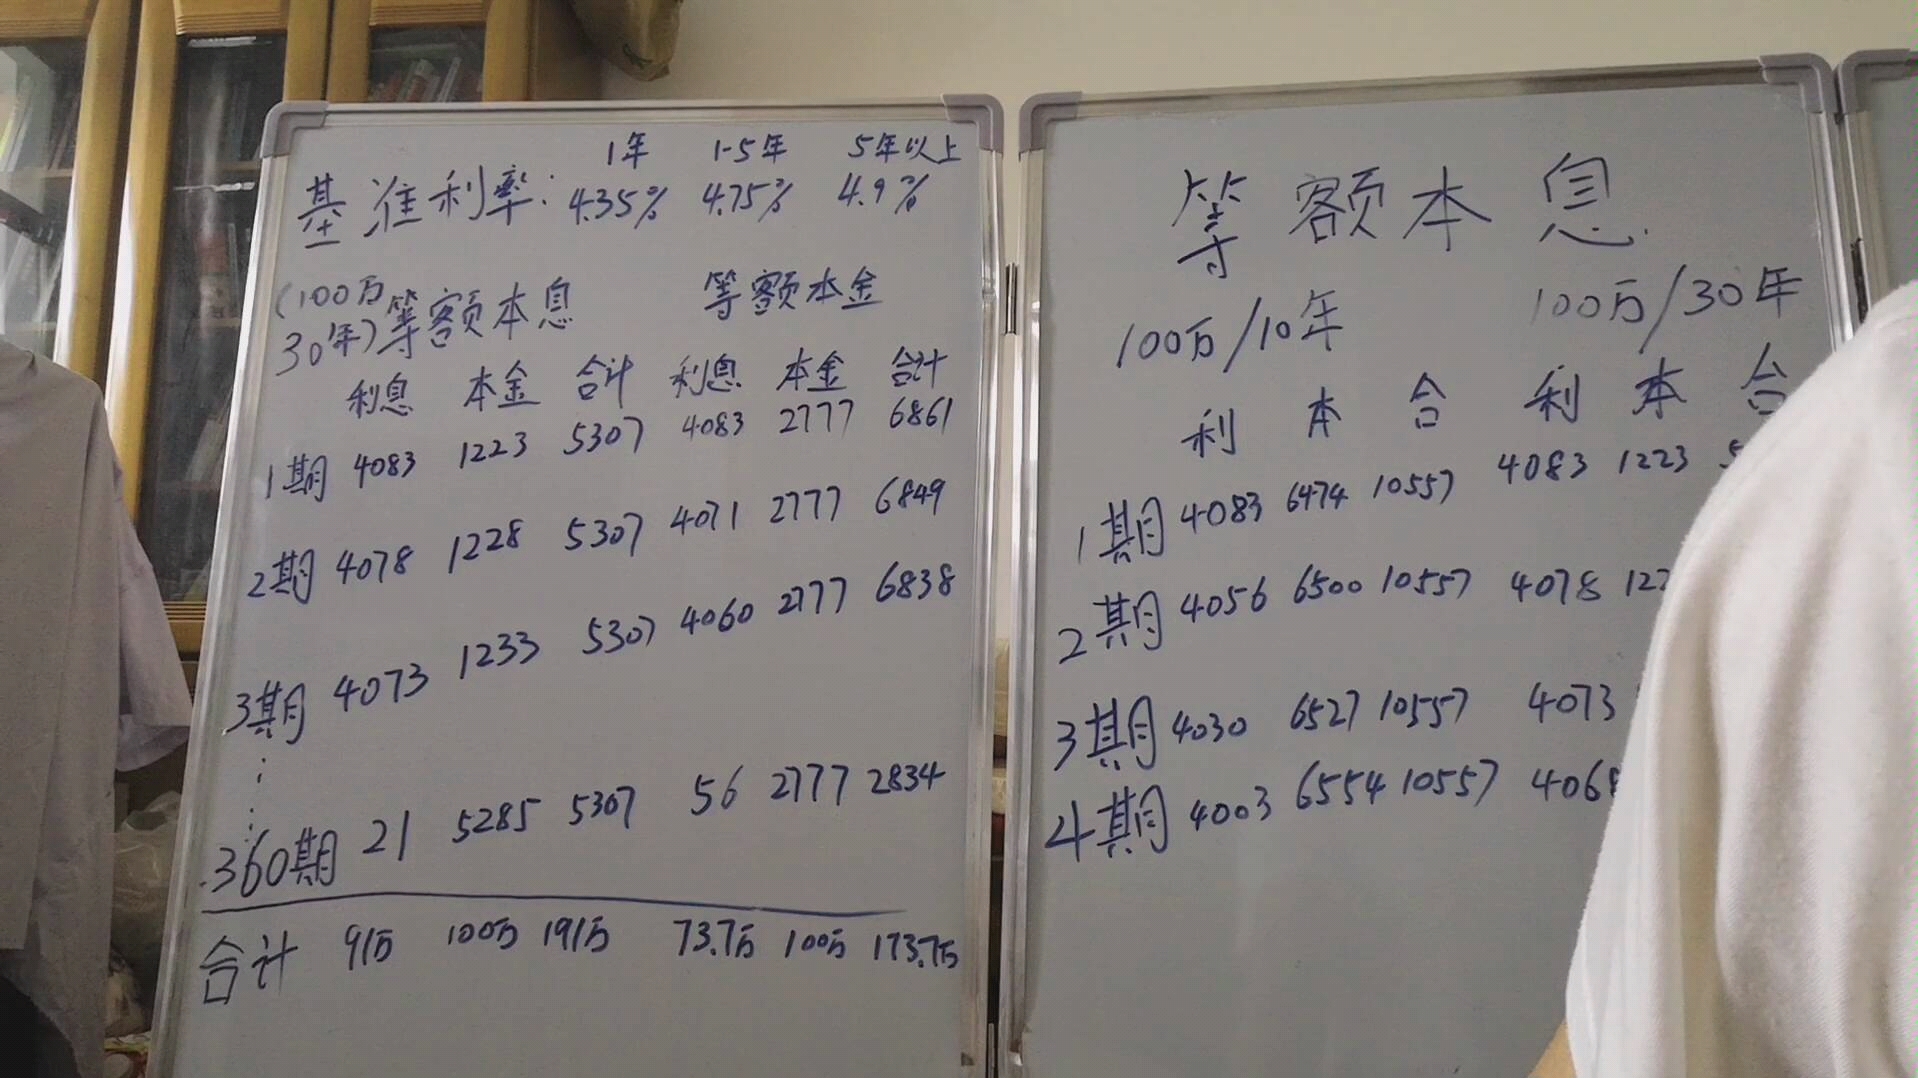 1年 1-5年 5年以上
基准利率: 4.35% 4.75% 4.9%
(100万
30年)等额本息 等额本金
利息 本金 合计 利息 本金 合计
1期 4083 1223 5307 4083 2777 6861
2期 4078 1228 5307 4071 2777 6849
3期 4073 1233 5307 4060 2777 6838
360期 21 5285 5307 56 2777 2834
合计 91万 100万 191万 73.7万 100万 173.7万
等额本息
100万/10年 100万/30年
利 本 合 利 本 合
1期 4083 6474 10557 4083 1223
2期 4056 6500 10557 4078
3期 4030 6527 10557 4073
4期 4003 6554 10557